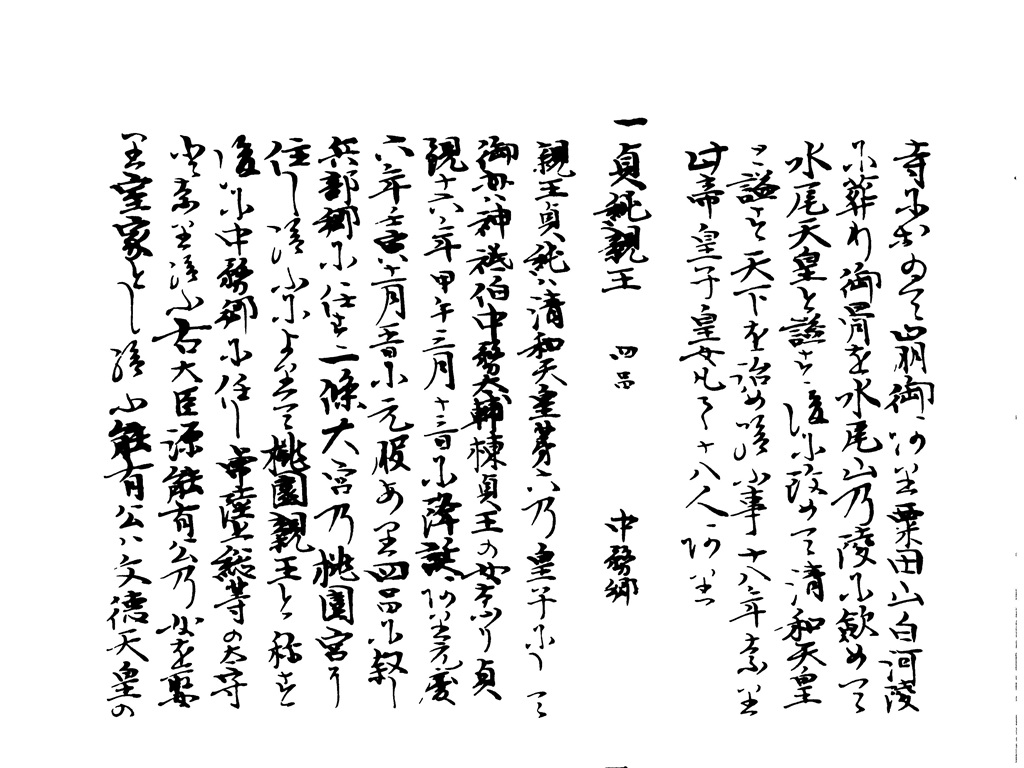 寺におゐて崩御阿里粟田山白河陵
に葬り御骨を水尾山乃陵に斂めて
水尾天皇と謚す後に改めて清和天皇
と謚す天下を治め給ふ事十八年奈里
此帝皇子皇女凡て十八人阿里
一貞純親王 四品 中務卿
親王貞純ハ清和天皇第六乃皇子にして
御母ハ神祗伯中務大輔棟貞王の女なり貞
観十六年甲午三月十三日に降誕阿里元慶
六年壬寅十二月五日に元服あ里四品に叙し
兵部卿に任す二條大宮乃桃園宮に
住し給ふによ里て桃園親王と称す
後に中務卿に任し常陸上総等の太守
と奈里給ふ右大臣源能有公乃女を娶
里室家とし給ふ能有公ハ文徳天皇の